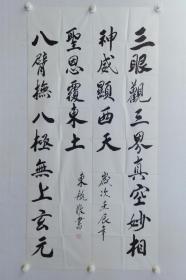 三眼觀三界真空妙相
神威顯西天
聖恩覆東土
八臂撫八極無上玄元
歲次壬辰年
東航俊書